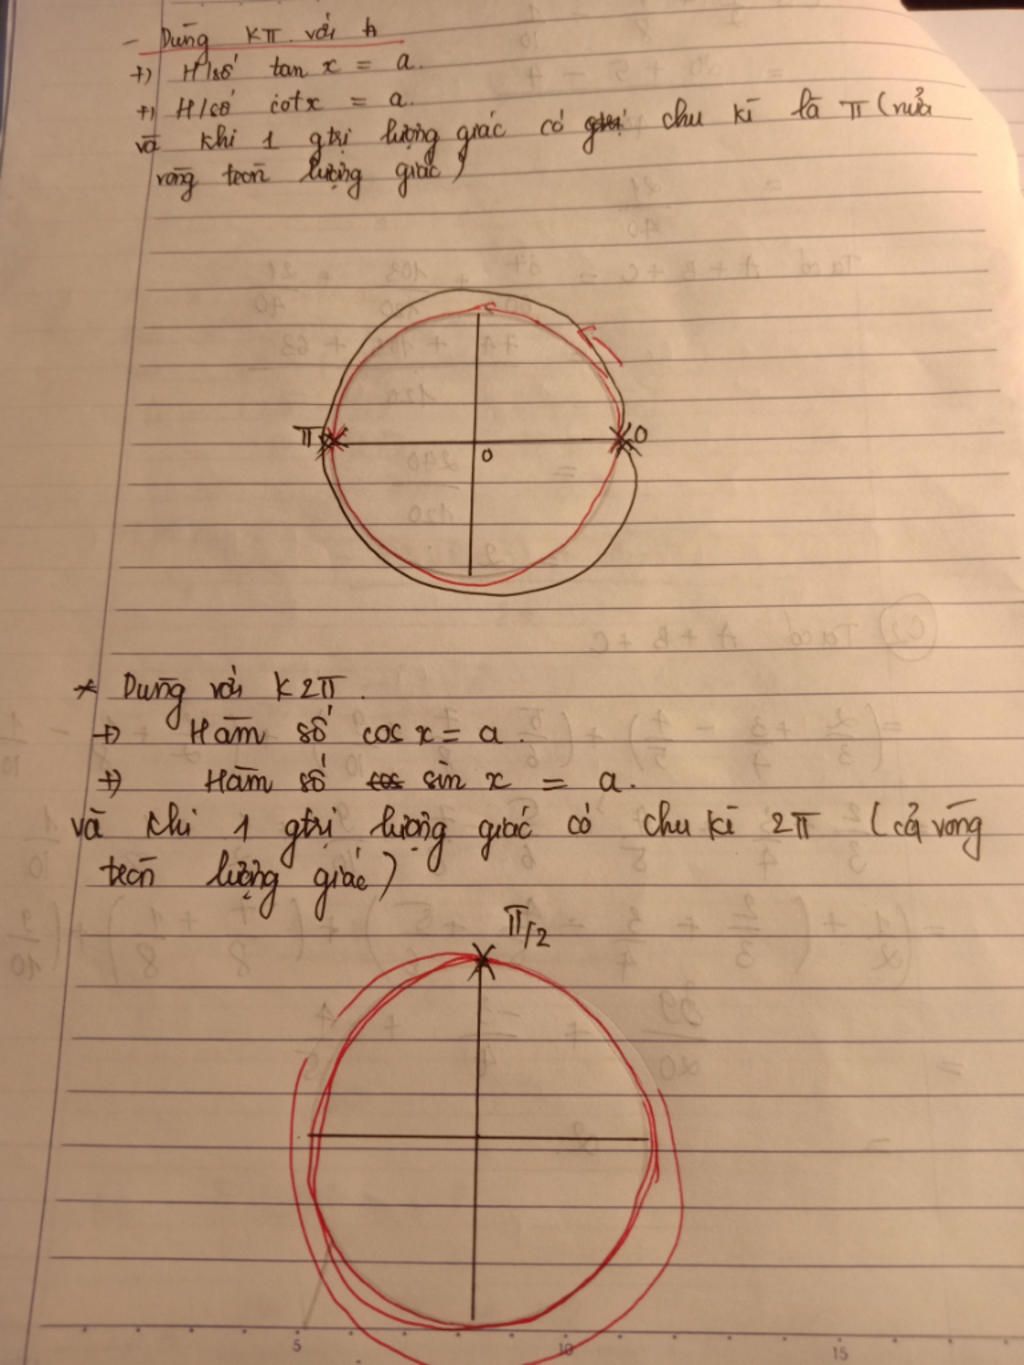 - Dùng kπ với
+) H/số tan x = a.
+) H/số cotx = a.
và khi 1 gtrị lượng giác có chu kì là π (nửa
vòng tròn lượng giác)
π
0
0
* Dùng với k2π.
+) Hàm số cos x = a.
+) Hàm số sin x = a.
và khi 1 gtrị lượng giác có chu kì 2π (cả vòng
tròn lượng giác)
π/2
5 10 15